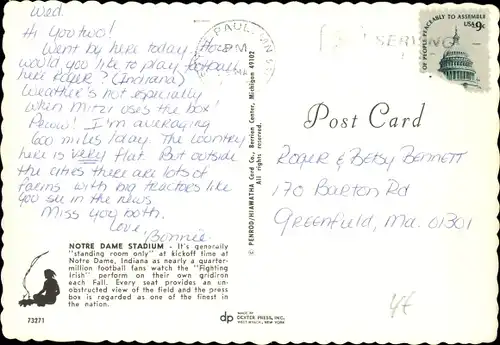 Wed.
Hi You two!
Went by here today. How
would you like to play football
here Roger? (Indiana)
Weather's hot especially
when Mitzi uses the box!
Peww! I'm averaging
600 miles/day. The country
here is very flat. But outside
the cities there are lots of
farms with big tractors like
you see in the news
Miss you both.
Love,
Bonnie
NOTRE DAME STADIUM - It's generally
"standing room only" at kickoff time at
Notre Dame, Indiana as nearly a quarter-
million football fans watch the "Fighting
Irish" perform on their own gridiron
each Fall. Every seat provides an un-
obstructed view of the field and the press
box is regarded as one of the finest in
the nation.
73271
© PENROD/HIAWATHA Card Co., Berrien Center, Michigan 49102
All rights reserved.
PAUL
PM
OF PEOPLE PEACEABLY TO ASSEMBLE
USA 9c
Post Card
Roger & Betsy Bennett
170 Barton Rd
Greenfield, Ma. 01301
dp
MADE BY
DEXTER PRESS, INC.
WEST NYACK, NEW YORK